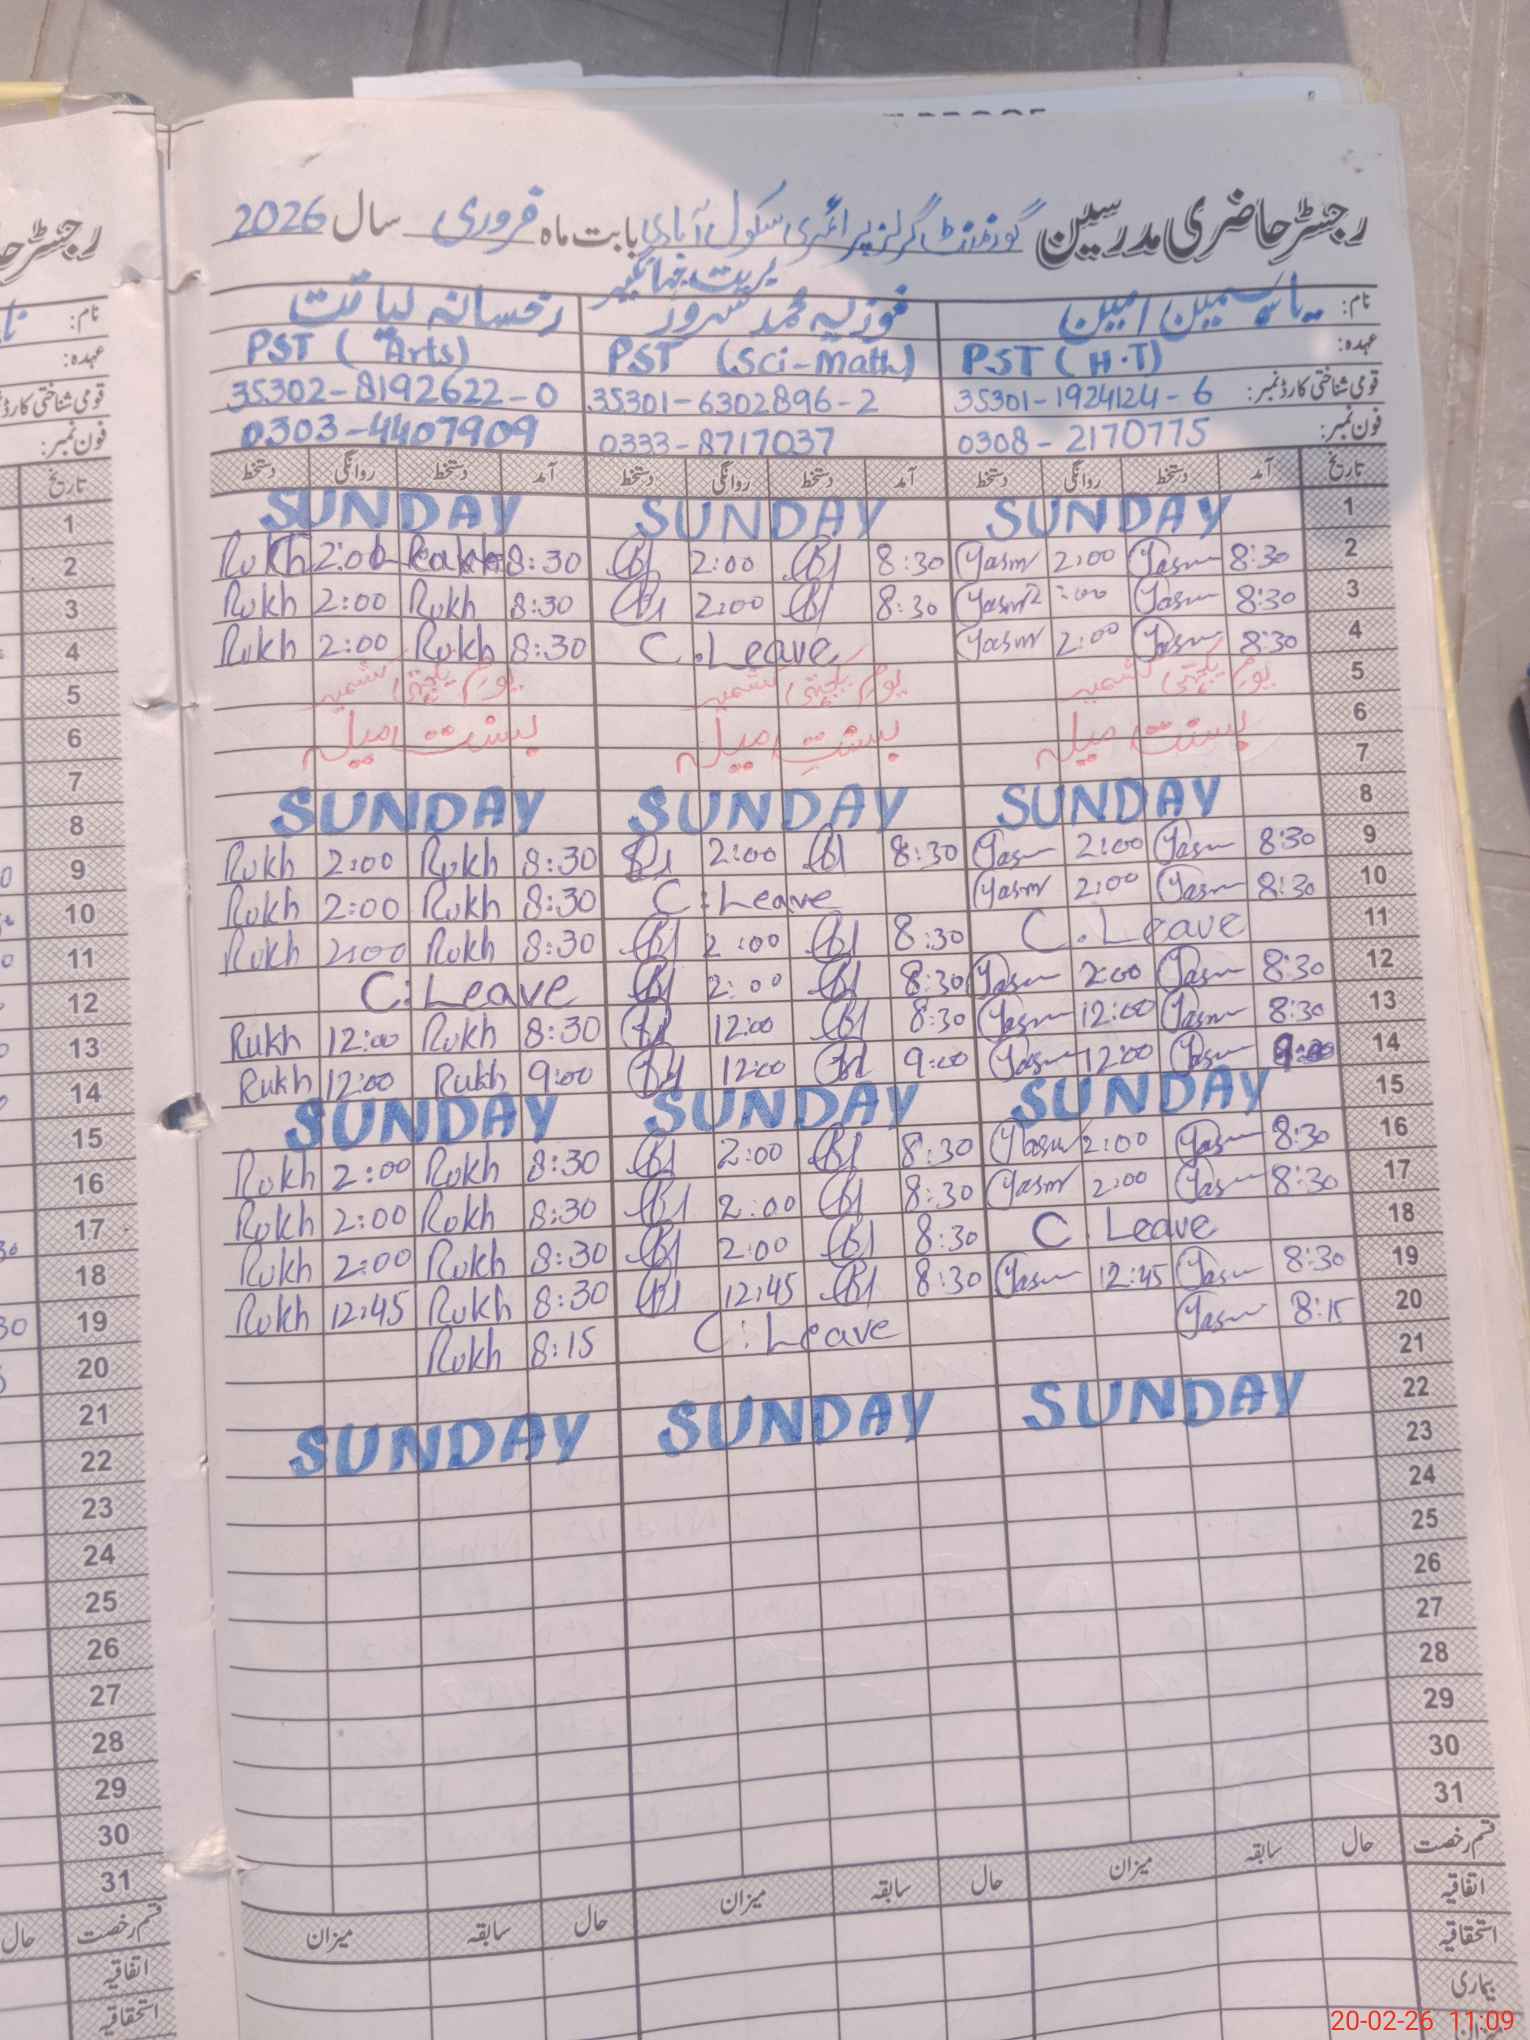 رجسٹر حاضری مدرسین گورنمنٹ گرلز پرائمری سکول آبادی بابت ماہ فروری سال 2026
نام: یاسمین امین فوزیہ محمد سرور رخسانہ لیاقت
عہدہ: PST (H.T) PST (Sci-Math) PST (Arts)
قومی شناختی کارڈ نمبر: 35301-1924124-6 35301-6302896-2 35302-8192622-0
فون نمبر: 0308-2170775 0333-8717037 0303-4407909
تاریخ آمد دستخط روانگی دستخط آمد دستخط روانگی دستخط آمد دستخط روانگی دستخط
1 SUNDAY SUNDAY SUNDAY
2 8:30 Yasm 2:00 Yasm 8:30 2:00 8:30 2:00 Rukh
3 8:30 Yasm 2:00 Yasm 8:30 2:00 8:30 Rukh 2:00 Rukh
4 8:30 Yasm 2:00 Yasm C.Leave 8:30 Rukh 2:00 Rukh
5 یوم یکجہتی کشمیر یوم یکجہتی کشمیر یوم یکجہتی کشمیر
6 بسنت میلہ بسنت میلہ بسنت میلہ
7
8 SUNDAY SUNDAY SUNDAY
9 8:30 Yasm 2:00 Yasm 8:30 2:00 8:30 Rukh 2:00 Rukh
10 8:30 Yasm 2:00 Yasm C:Leave 8:30 Rukh 2:00 Rukh
11 C.Leave 8:30 2:00 8:30 Rukh 2:00 Rukh
12 8:30 Yasm 2:00 Yasm 8:30 2:00 C:Leave
13 8:30 Yasm 12:00 Yasm 8:30 12:00 8:30 Rukh 12:00 Rukh
14 9:00 Yasm 12:00 Yasm 9:00 12:00 9:00 Rukh 12:00 Rukh
15 SUNDAY SUNDAY SUNDAY
16 8:30 Yasm 2:00 Yasm 8:30 2:00 8:30 Rukh 2:00 Rukh
17 8:30 Yasm 2:00 Yasm 8:30 2:00 8:30 Rukh 2:00 Rukh
18 C.Leave 8:30 2:00 8:30 Rukh 2:00 Rukh
19 8:30 Yasm 12:45 Yasm 8:30 12:45 8:30 Rukh 12:45 Rukh
20 8:15 Yasm C:Leave 8:15 Rukh
21
22 SUNDAY SUNDAY SUNDAY
23
24
25
26
27
28
29
30
31
قسم رخصت حال سابقہ میزان حال سابقہ میزان حال سابقہ میزان
اتفاقیہ
استحقاقیہ
بیماری
رجسٹر
نام:
عہدہ:
قومی شناختی کارڈ
فون نمبر:
تاریخ
1
2
3
4
5
6
7
8
9
10
11
12
13
14
15
16
17
18
19
20
21
22
23
24
25
26
27
28
29
30
31
قسم رخصت حال
اتفاقیہ
استحقاقیہ
20-02-26 11:09